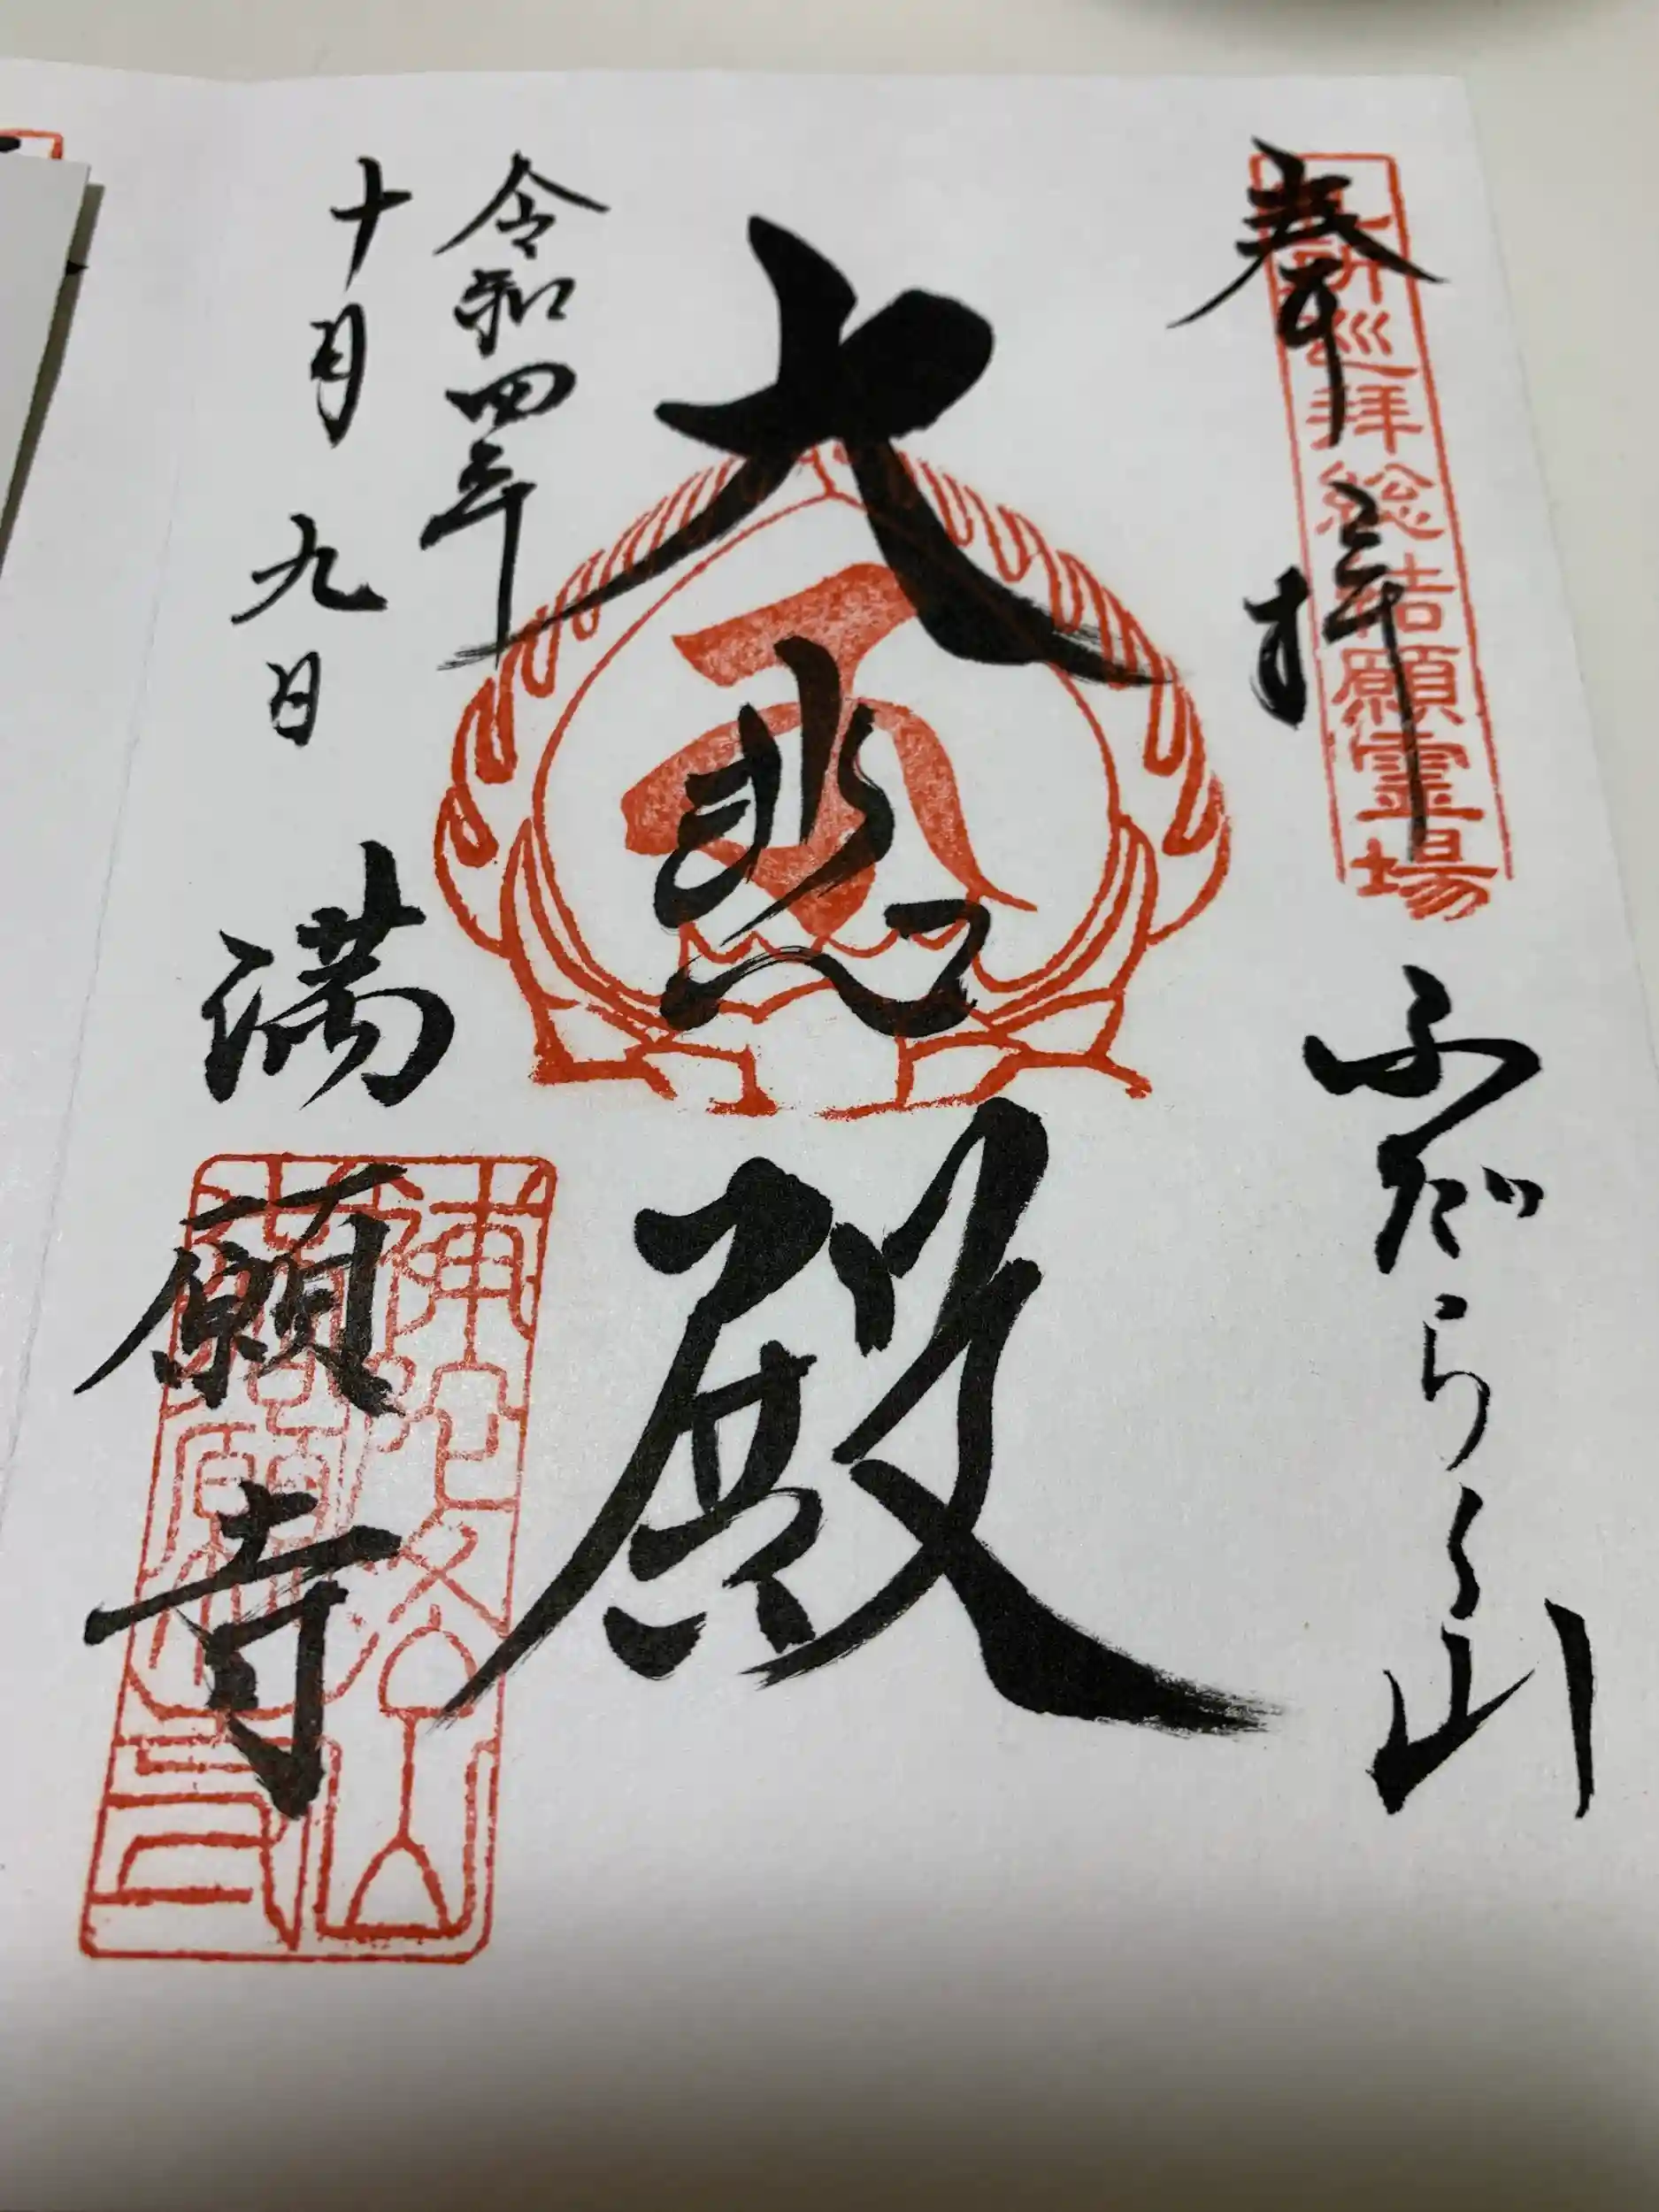 奉拝
巡拝総結願霊場
ふだらく山
大悲殿
令和四年
十月九日
満願寺
補陀洛山